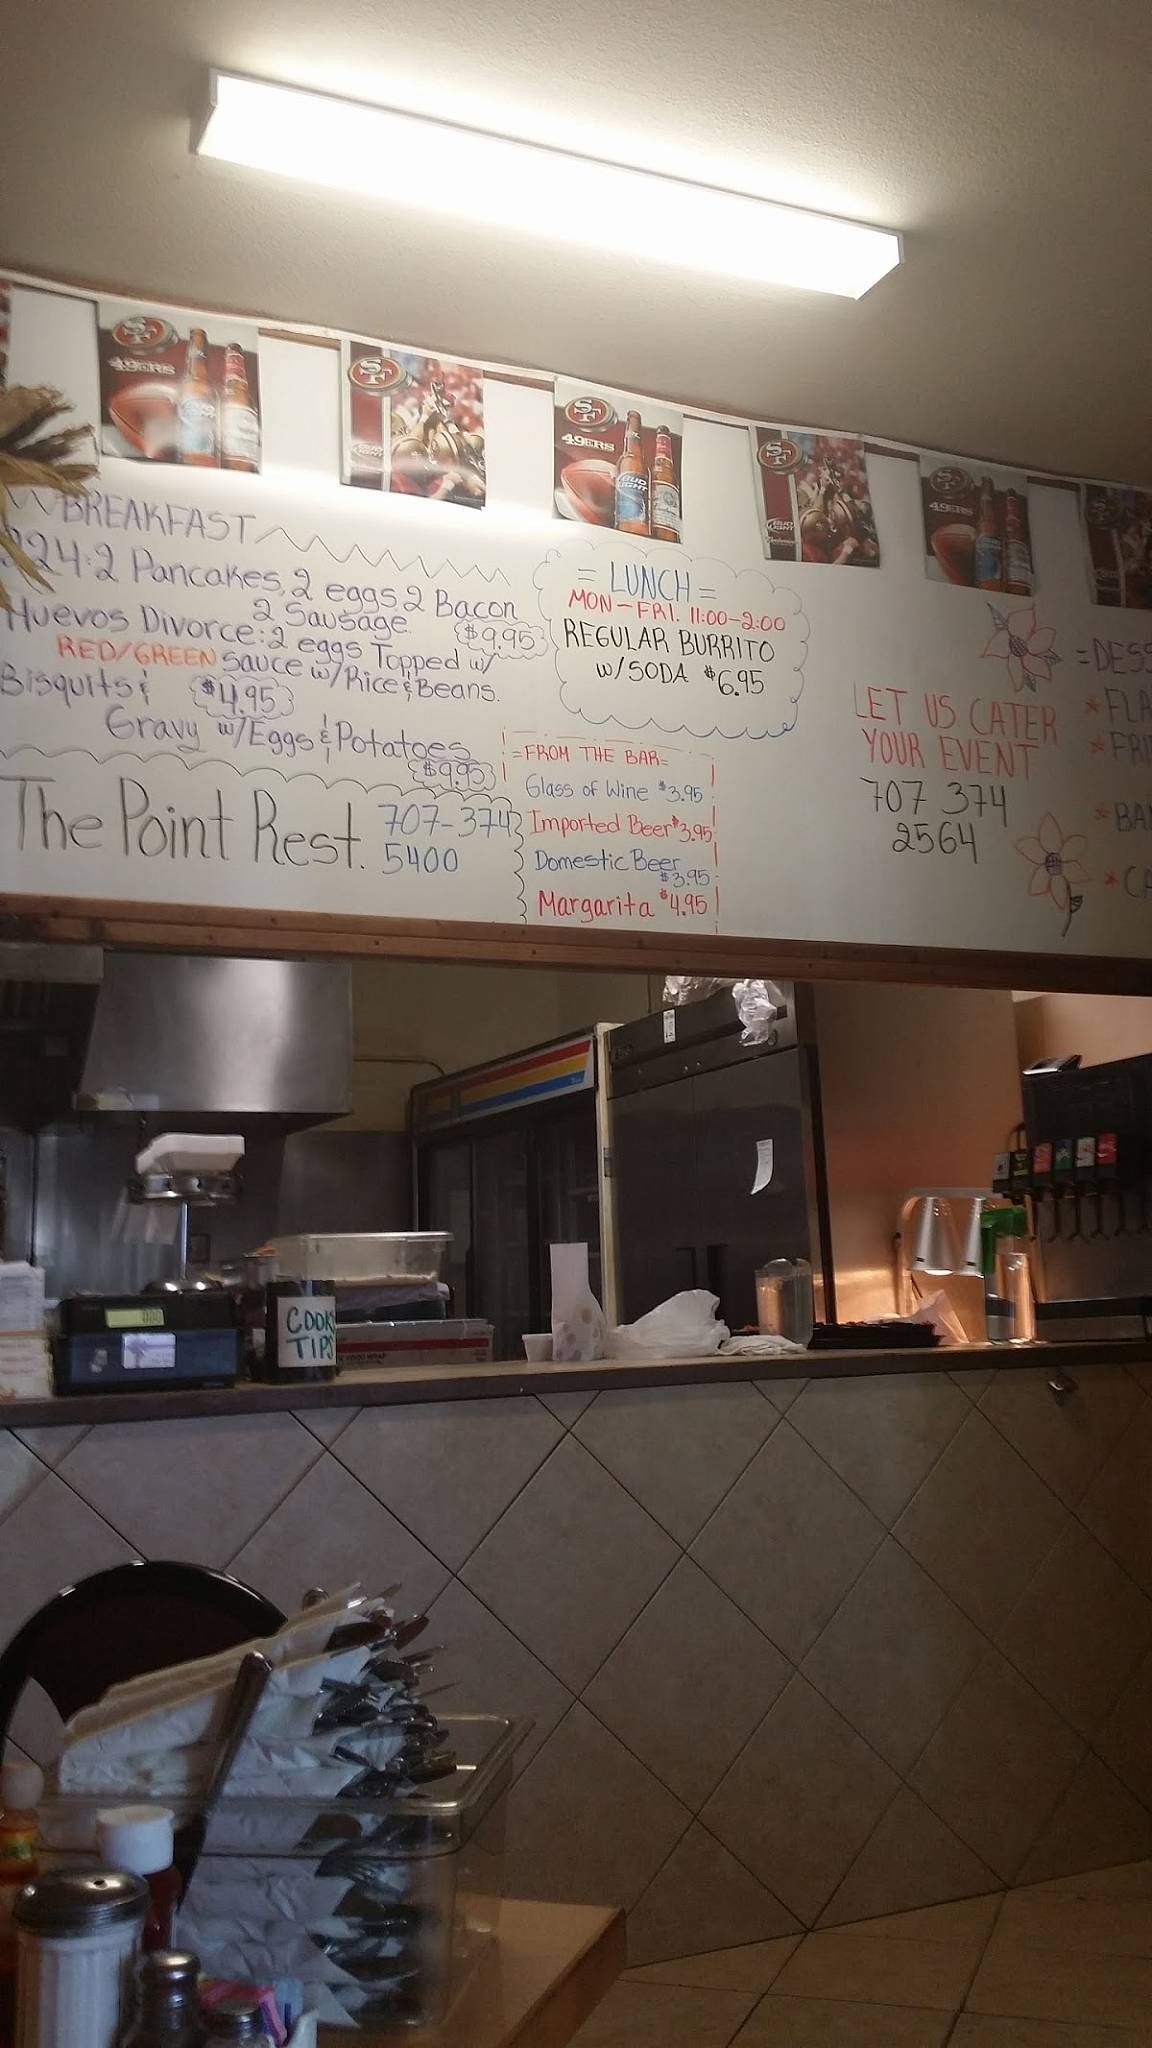 SF
49ERS
SF
SF
49ERS
BUD LIGHT
SF
BUD LIGHT
SF
49ERS
BREAKFAST
224: 2 Pancakes, 2 eggs 2 Bacon
2 Sausage. $9.95
Huevos Divorce: 2 eggs Topped w/
RED/GREEN Sauce w/Rice & Beans.
$4.95
Bisquits &
Gravy w/Eggs & Potatoes
$9.95
The Point Rest. 707-374
5400
= LUNCH =
MON-FRI. 11:00-2:00
REGULAR BURRITO
w/SODA $6.95
=FROM THE BAR=
Glass of Wine $3.95
Imported Beer $3.95
Domestic Beer
$3.95
Margarita $4.95
LET US CATER
YOUR EVENT
707 374
2564
=DESS
* FLA
* FRI
* BA
* CA
COOK
TIPS